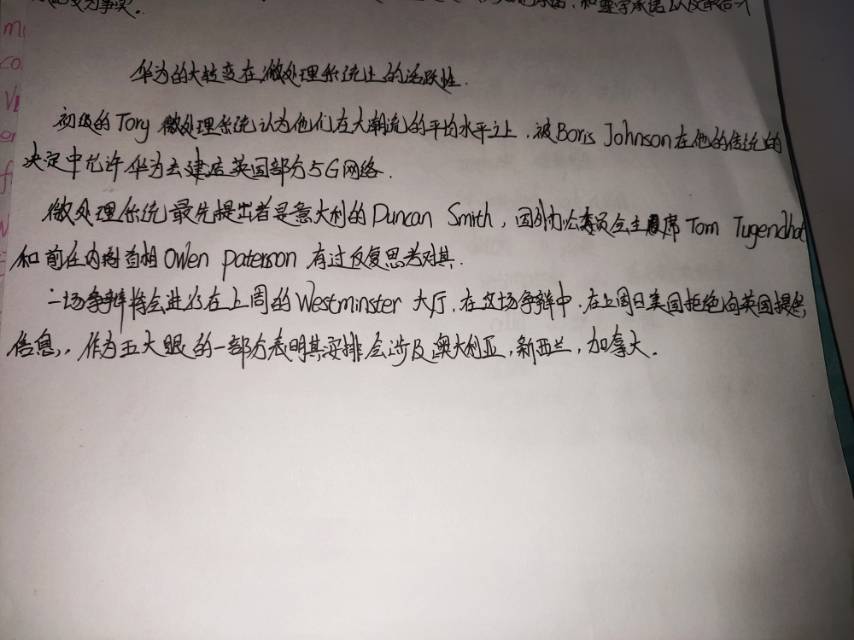 华为的大转变在微处理系统上的活跃性.
初级的Tory 微处理系统认为他们在大潮流的平均水平之上，被Boris Johnson在他的传统的
决定中允许华为去建造英国部分5G网络.
微处理系统最先提出者是意大利的Duncan Smith，国外办公委员会主席Tom Tugendhat
和前任内阁首相Owen paterson 有过反复思考对其.
一场争辩将会进行在上周的Westminster 大厅，在这场争辩中，在上周日美国拒绝向英国提供
信息,，作为五大眼的一部分表明其安排会涉及澳大利亚，新西兰，加拿大.